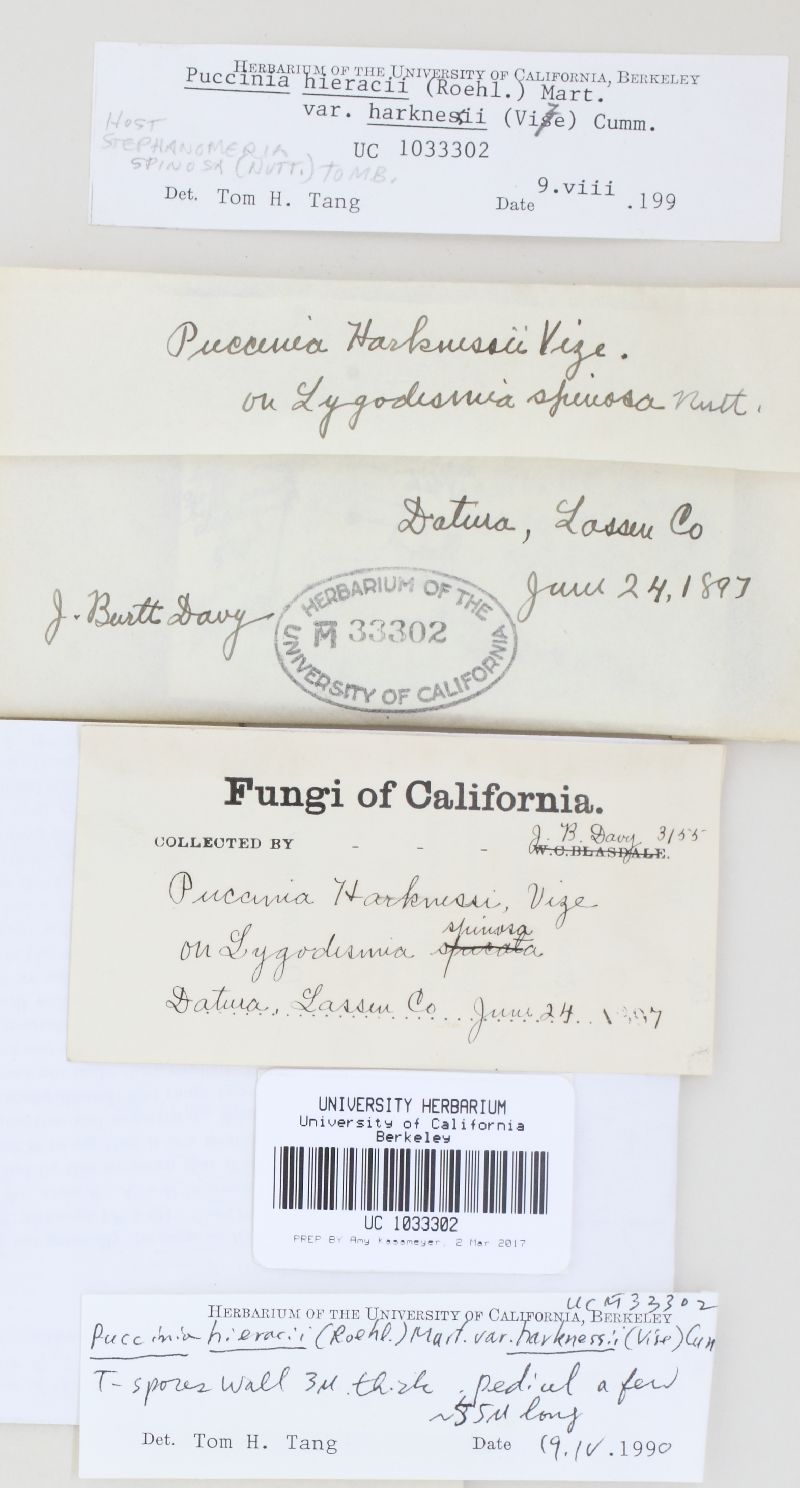 HERBARIUM OF THE UNIVERSITY OF CALIFORNIA, BERKELEY
Puccinia hieracii (Roehl.) Mart.
var. harknessii (Vize) Cumm.
HOST
STEPHANOMERIA
SPINOSA (NUTT.) TOMB.
UC 1033302
Det. Tom H. Tang
Date 9.viii .199
Puccinia Harknessii Vize.
on Lygodesmia spinosa Nutt.
Datura, Lassen Co
June 24, 1897
J. Burtt Davy
HERBARIUM OF THE
M 33302
UNIVERSITY OF CALIFORNIA
Fungi of California.
J. B. Davy 3155
COLLECTED BY - - - W.C.BLASDALE.
Puccinia Harknessi, Vize
spinosa
on Lygodesmia spicata
Datura, Lassen Co June 24 1897
UNIVERSITY HERBARIUM
University of California
Berkeley
UC 1033302
PREP BY Amy Kasameyer, 2 Mar 2017
UC M33302
HERBARIUM OF THE UNIVERSITY OF CALIFORNIA, BERKELEY
Puccinia hieracii (Roehl.) Mart. var. harknessii (Vise) Cum
T-spores wall 3µ thick, pedicel a few
~55µ long
Det. Tom H. Tang
Date 19.IV.1990